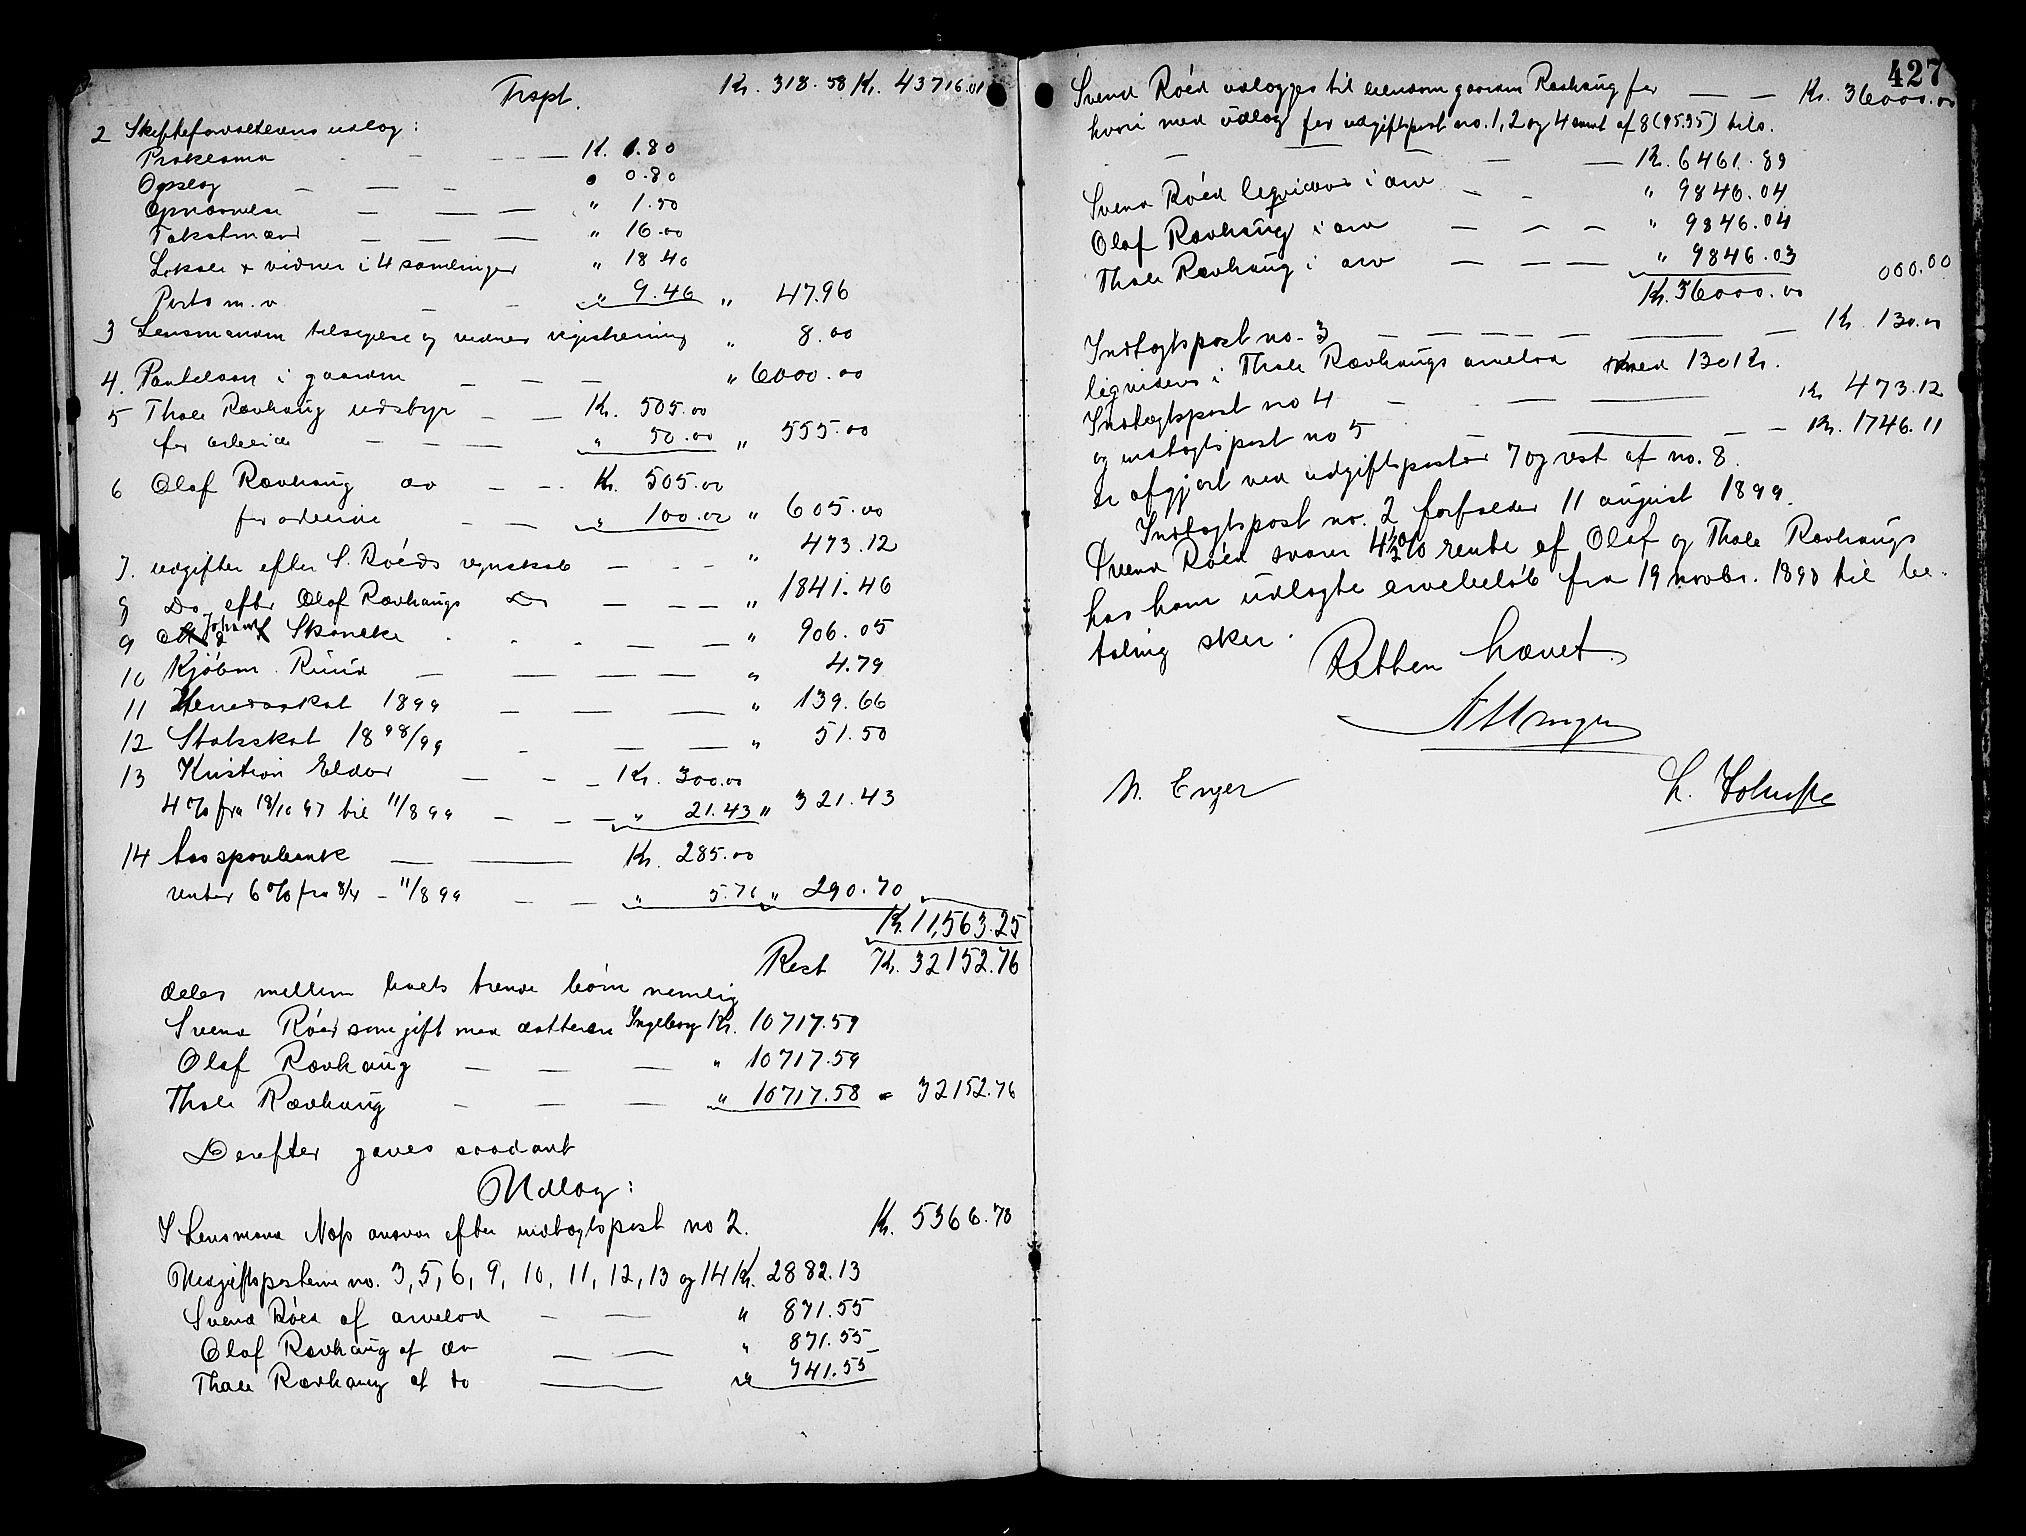 Trspt. Kr. 318.58 Kr. 43716.01
2 Skifteforvalterens udlæg:
Proklama — — — K. 1.80
Opslag — — — " 0.80
Opnævnelse — — — " 1.50
Takstmænd — — — " 16.00
Lokale & vidner i 4 samlinger " 18.40
Porto m.v. — — " 9.46 " 47.96
3 Lensmanden tilsigelse og vidner registrering " 8.00
4. Pantelaan i gaarden — — — " 6000.00
5 Thale Rævhaug udstyr — — Kr. 505.00
for arbeide — — — " 50.00 " 555.00
6 Olaf Rævhaug do — — Kr. 505.00
for arbeide — — " 100.00 " 605.00
7. udgifter efter S. Röeds regnskab — — — " 473.12
8 Do efter Olaf Rævhaugs Do — — — " 1841.46
9 Johan Skancke — — — " 906.05
10 Kjöbm. Ruud — — — — " 4.79
11 Herredsskat 1899 — — — " 139.66
12 Statsskat 1898/99 — — — " 51.50
13 Kristian Eldor — — — Kr. 300.00
4 % fra 18/10 97 til 11/8 99 — — — " 21.43 " 321.43
14 Aas sparebank — — Kr. 285.00
renter 6 % fra 8/4 - 11/8 99 — — " 5.70 " 290.70
Kr. 11,563.25
Rest Kr. 32152.76
deles mellem boets trende börn nemlig
Svend Röed som gift med datteren Ingeborg Kr. 10717.59
Olaf Rævhaug — — — " 10717.59
Thale Rævhaug — — — " 10717.58 = 32152.76
Derefter gaves saadant
Udlæg:
I Lensmand Næss ansvar efter indtægtspost no 2. Kr. 5366.78
Udgiftsposterne no. 3, 5, 6, 9, 10, 11, 12, 13 og 14 Kr. 2882.13
Svend Röed af arvelod — — " 871.55
Olaf Rævhaug af do — — " 871.55
Thale Rævhaug af do — — " 741.55
427
Svend Röed udlægges til eiendom gaarden Rævhaug for — — Kr. 36000.00
hvori med udlæg for udgiftspost no. 1, 2 og 4 samt af 8 (95.35) tils.
— — — — Kr. 6461.89
Svend Röed liqvideres i arv — — " 9846.04
Olaf Rævhaug i arv — — — " 9846.04
Thale Rævhaug i arv — — — " 9846.03
Kr. 36000.00 000.00
Indtægtspost no. 3 — — — — Kr. 130.00
liqvideres i Thale Rævhaugs arvelod med 130 Kr.
Indtægtspost no 4 — — — Kr. 473.12
og indtægtspost no 5 — — — Kr. 1746.11
er afgjort ved udgiftsposter 7 og rest af no. 8.
Indtægtspost no. 2 forfalder 11 august 1899.
Svend Röed svarer 4½ % rente af Olaf og Thale Rævhaugs
hos ham udlagte arvebeløb fra 19 novbr. 1898 til be-
taling sker.
Retten hævet.
N. Enger